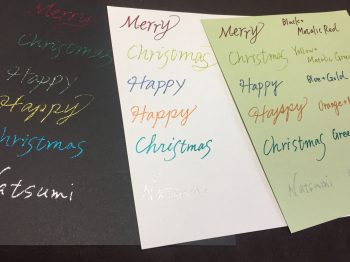 Merry
Christmas
Happy
Happy
Christmas
Natsumi
Merry
Christmas
Happy
Happy
Christmas
Natsumi
Merry
Black+
Matalic Red
Christmas
Yellow+
Matalic Green
Happy
Blue+Gold
Happy
Orange+
Christmas
Green
Natsumi